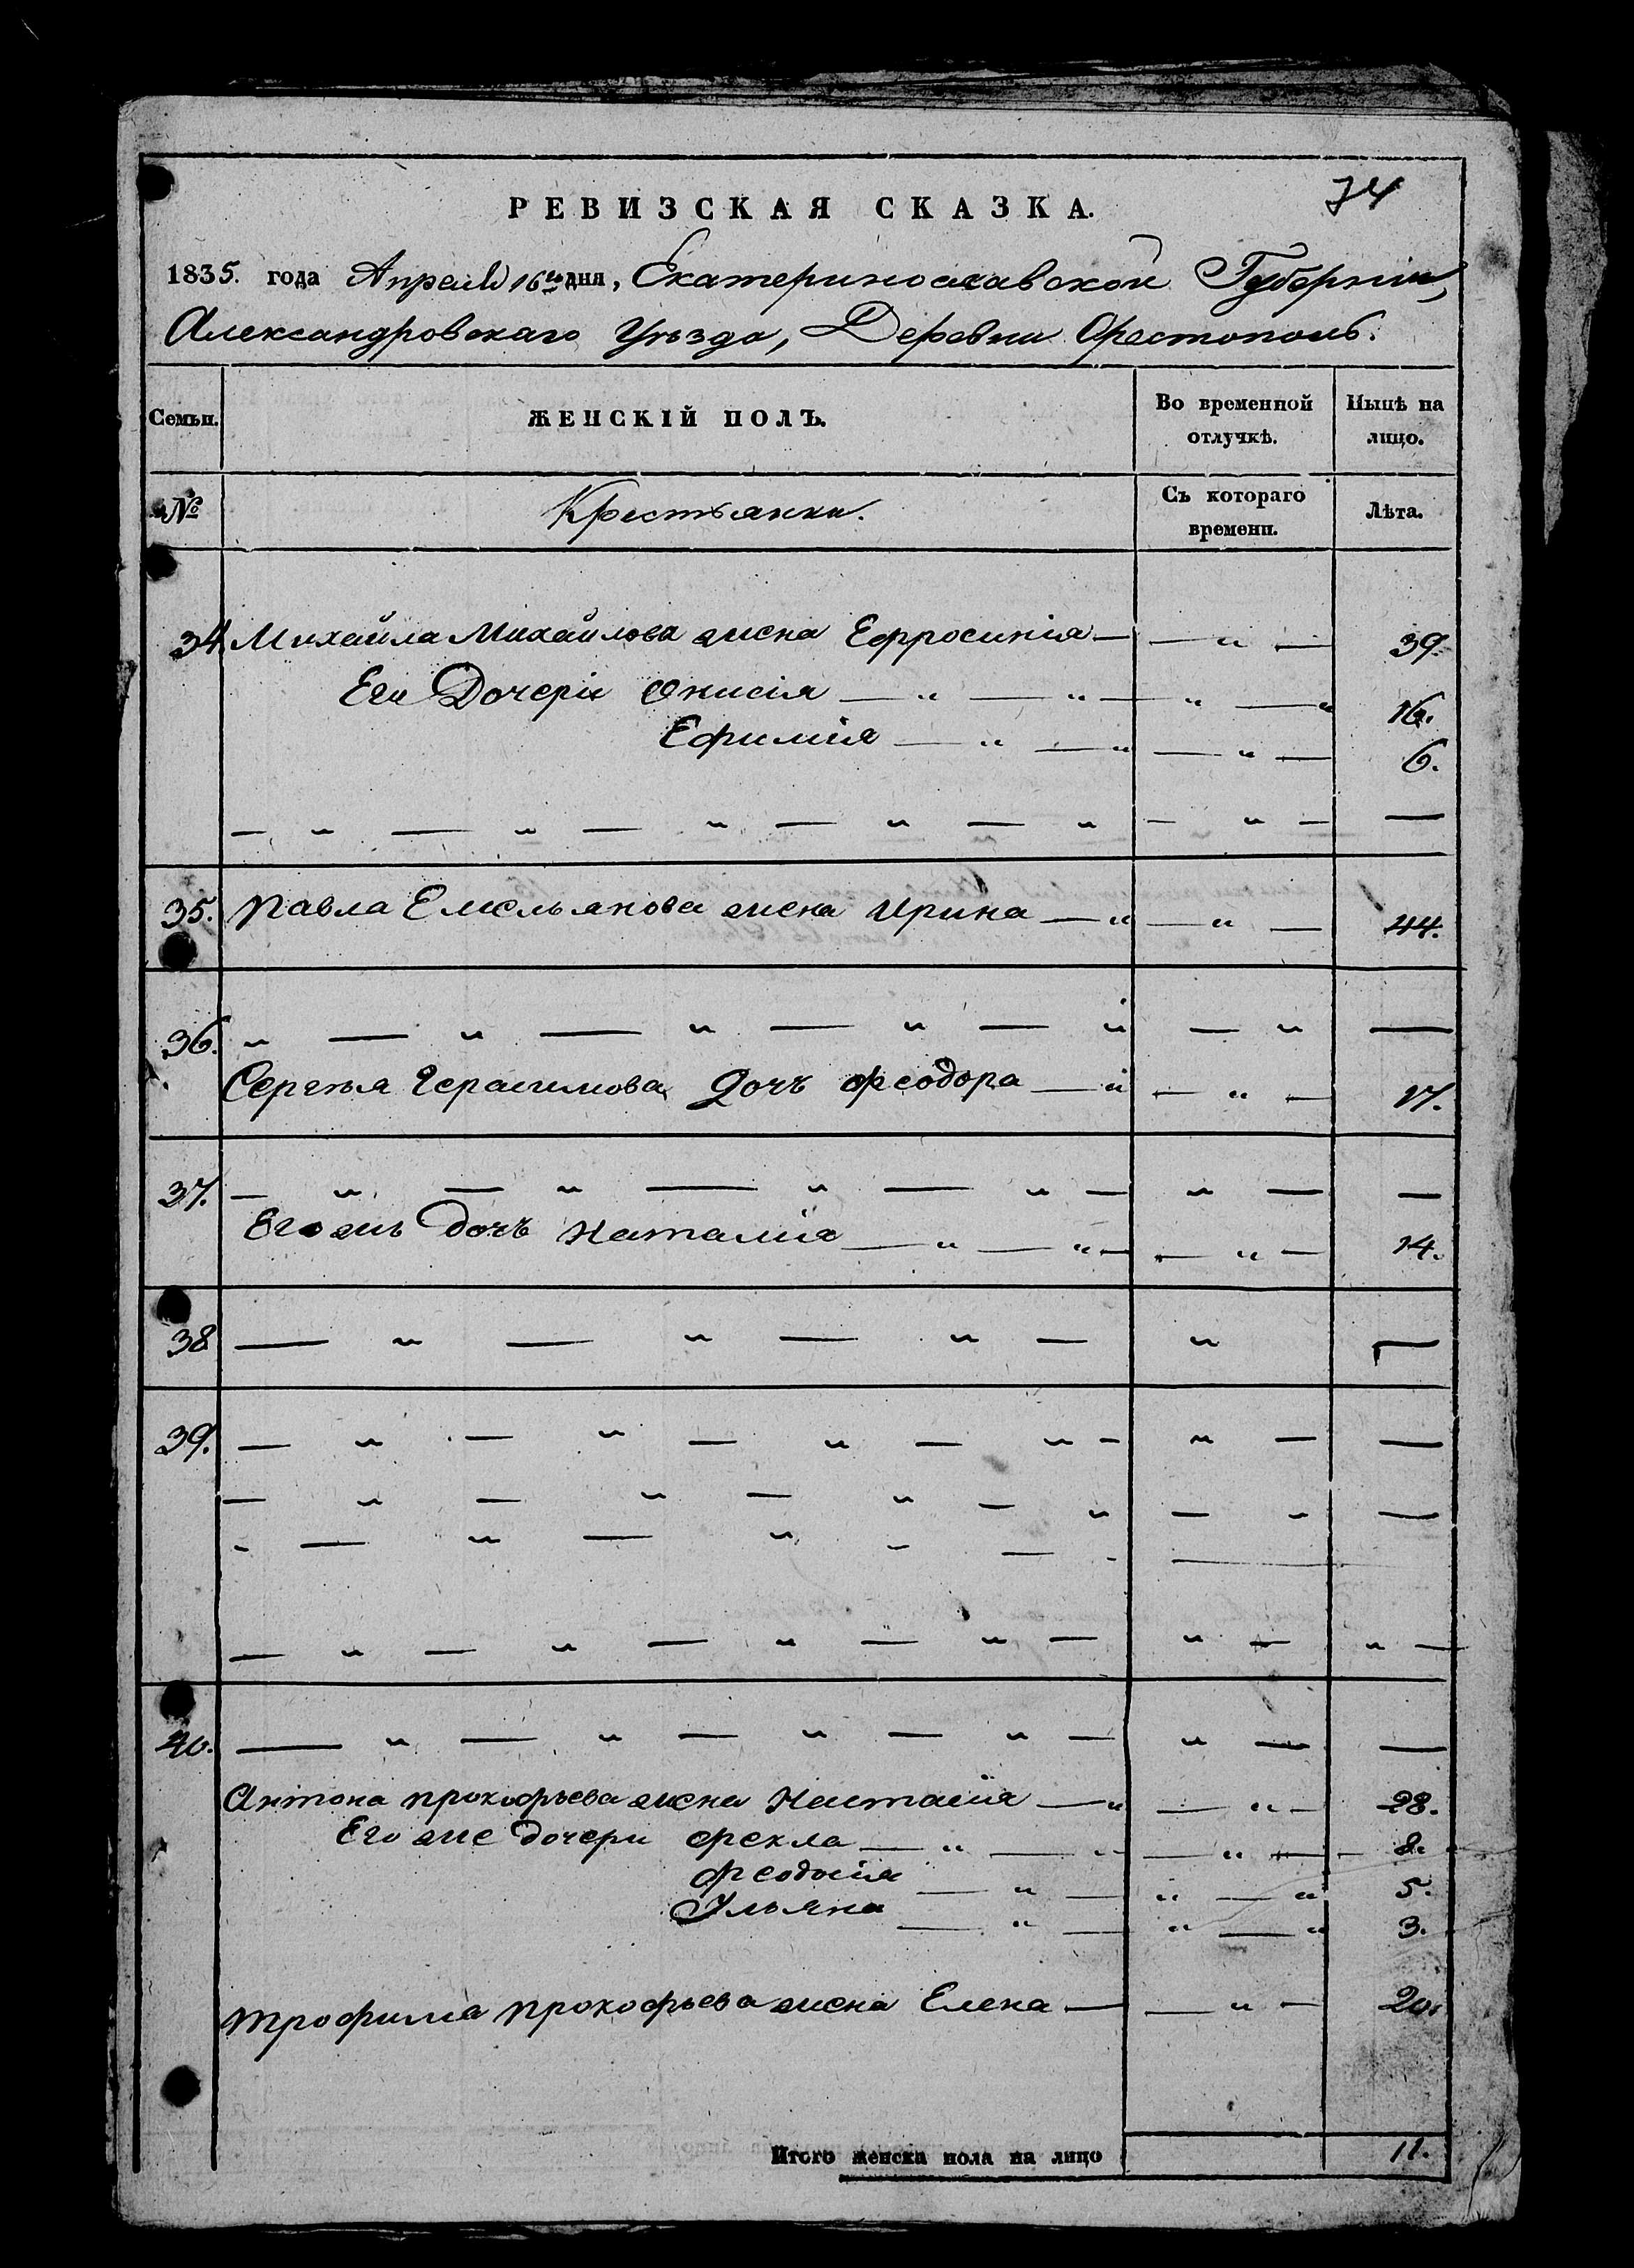 74
РЕВИЗСКАЯ СКАЗКА.
1835. года Апреля 16го дня, Екатеринославской Губерніи,
Александровскаго Уѣзда, Деревни Орестополь.
Семьи. ЖЕНСКІЙ ПОЛЪ. Во временной отлучкѣ. Нынѣ на лицо.
№ Крестьянки. Съ котораго времени. Лѣта.
34 Михайла Михайлова жена Ефросинія — — " — 39.
Его Дочери Онисія — " — " — " — " 16.
Ефимія — " — " — " — 6.
— " — " — " — " — " — " — —
35. Павла Емельянова жена Ирина — " — " — 44.
36. " — " — " — " — " — " —
Сергѣя Герасимова Дочь Феодора — " — " — 17.
37. — " — " — " — " — " — —
Его жъ дочь Наталія — " — " — — " — 14.
38 — " — " — " — " —
39. — " — " — " — " — " — —
— " — " — " — " — " —
- — " — " - — - —
— " — " — " — " — " — " —
40. — " — " — " — " — " — —
Антона Прокофьева жена Настасія — " — " — 28.
Его же дочери Фекла — " — - — " — 8.
Феодосія — " — " — " 5.
Ульяна — " — " — " 3.
Трофима Прокофьева жена Елена — — " — 20.
Итого женска пола на лицо 11.